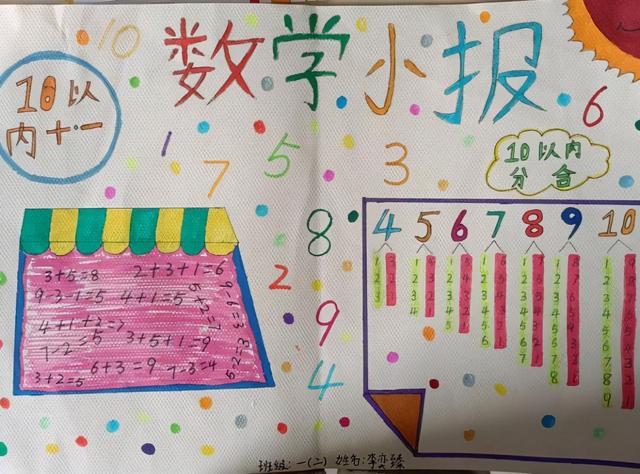 数学小报
10
10以
内+·-
1
7
5
3
6
10以内
分合
8
2
9
4
3+5=8
2+3+1=6
9-3-1=5
4+1=5
5+2=7
9-6=3
4+1+2=7
7-2=5
3+5+1=9
5-2=3
3+2=5
6+3=9
7-3=4
4 5 6 7 8 9 10
班级:一(二) 姓名:李奕臻